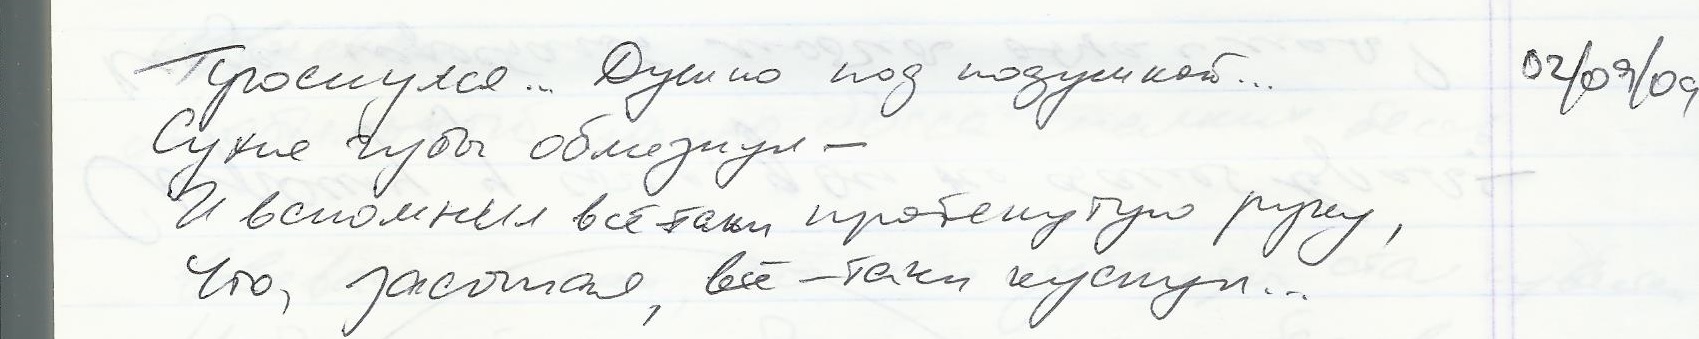 Проснулся... Душно под подушкой... 02/09/09
Сухие губы облизнул –
И вспомнил всё таки протянутую руку,
Что, засыпая, всё – таки куснул...